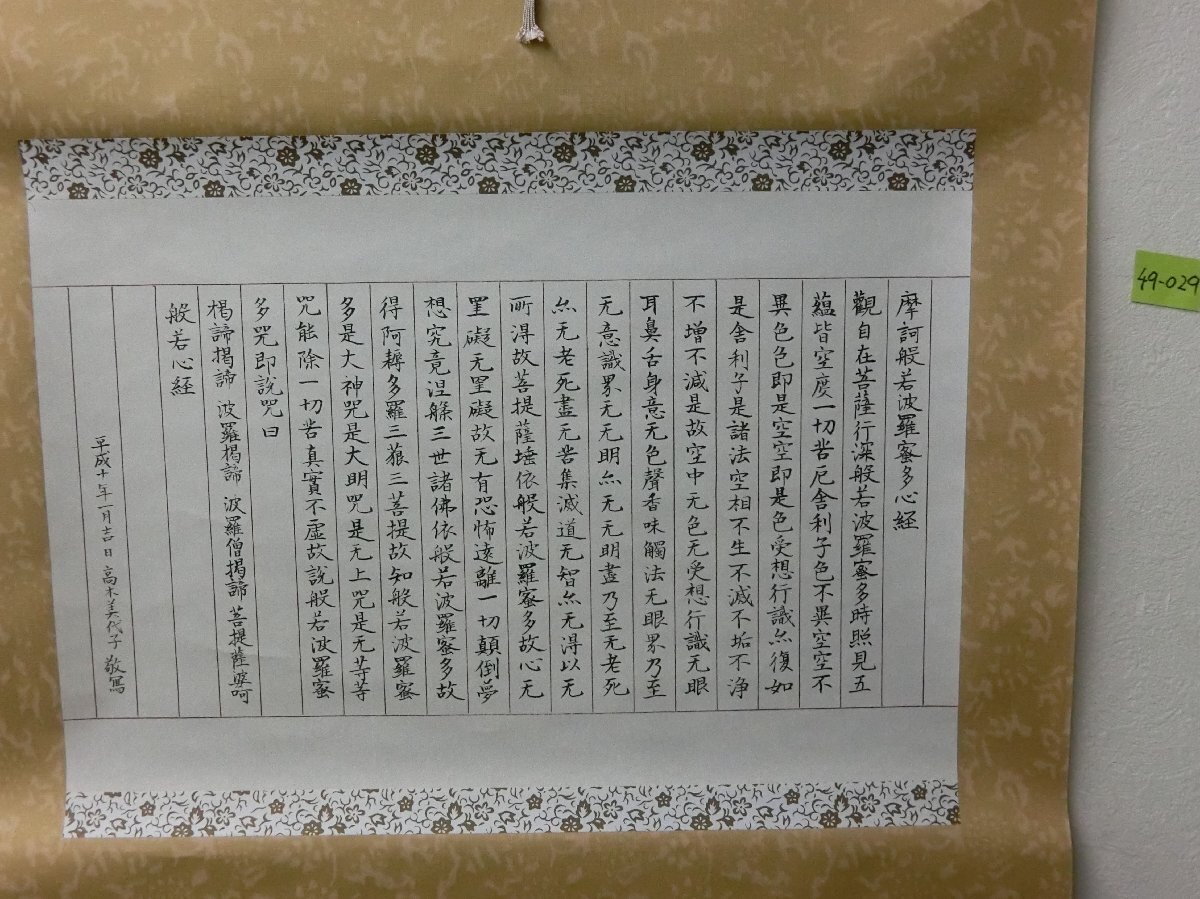 摩訶般若波羅蜜多心経
觀自在菩薩行深般若波羅蜜多時照見五
蘊皆空度一切苦厄舍利子色不異空空不
異色色即是空空即是色受想行識亦復如
是舍利子是諸法空相不生不滅不垢不浄
不增不減是故空中无色无受想行識无眼
耳鼻舌身意无色聲香味觸法无眼界乃至
无意識界无无明亦无无明盡乃至无老死
亦无老死盡无苦集滅道无智亦无得以无
所得故菩提薩埵依般若波羅蜜多故心无
罣礙无罣礙故无有恐怖遠離一切顛倒夢
想究竟涅槃三世諸佛依般若波羅蜜多故
得阿耨多羅三藐三菩提故知般若波羅蜜
多是大神咒是大明咒是无上咒是无等等
咒能除一切苦真實不虛故說般若波羅蜜
多咒即說咒曰
揭諦揭諦 波羅揭諦 波羅僧揭諦 菩提薩婆訶
般若心経
平成十年一月吉日 高木美代子 敬寫
49-029